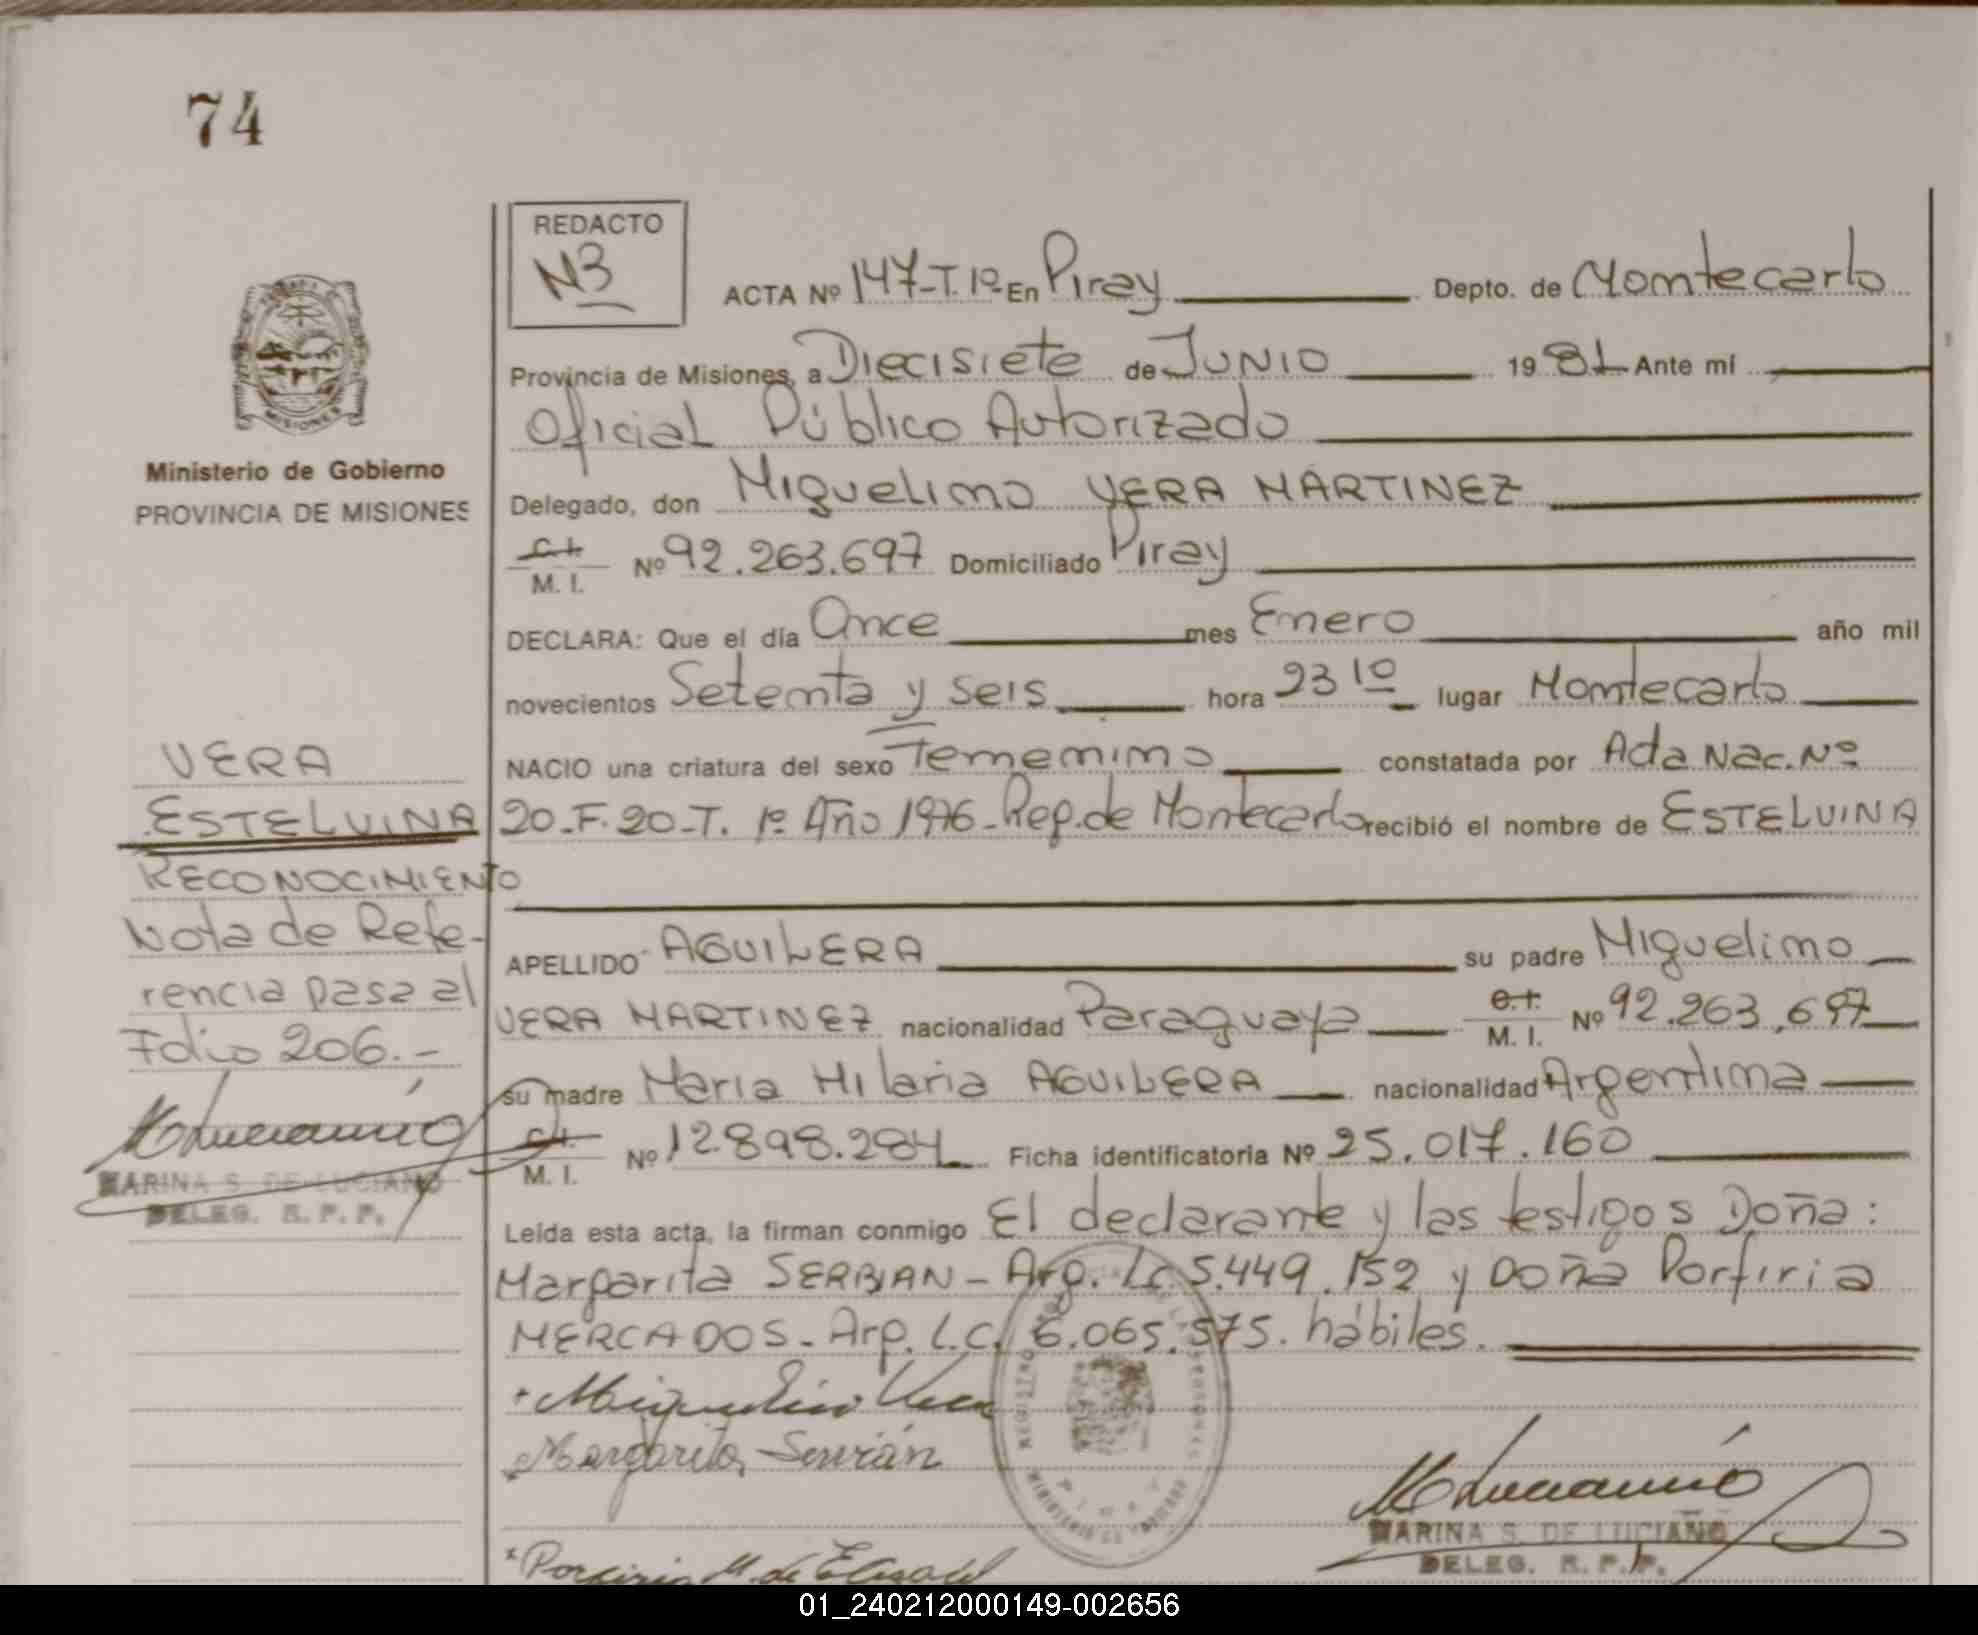 74
REDACTO
N3
ACTA Nº 147-T.1º En Piray Depto. de Montecarlo
Provincia de Misiones, a Diecisiete de JUNIO 1981 Ante mí
Oficial Público Autorizado
MISIONES
Ministerio de Gobierno
PROVINCIA DE MISIONES
Delegado, don Miguelino VERA MARTINEZ
C.I.
M. I. Nº 92.263.697 Domiciliado Piray
DECLARA: Que el día Once mes Enero año mil
novecientos Setenta y seis hora 23 10 lugar Montecarlo
NACIO una criatura del sexo Femenino constatada por Acta Nac. Nº
20-F.20-T. 1º Año 1976-Rep. de Montecarlo recibió el nombre de ESTELVINA
VERA
ESTELVINA
RECONOCIMIENTO
Nota de Refe-
rencia pasa al
Folio 206.-
MARINA S. DE LUCIANO
DELEG. R. P. P.
APELLIDO AGUILERA su padre Miguelino
VERA MARTINEZ nacionalidad Paraguaya C.I. M. I. Nº 92.263.697
su madre Maria Hilaria AGUILERA nacionalidad Argentina
C.I.
M. I. Nº 12.898.284 Ficha identificatoria Nº 25.017.160
Leída esta acta, la firman conmigo El declarante y las testigos Doña:
Margarita SERBIAN - Arg. L.C. 5.449.152 y Doña Porfiria
MERCADOS - Arg. L.C. 6.065.575. hábiles.
Miguelino Vera
Margarita Servián
Porfiria M. de
REGISTRO
MINISTERIO DE
MARINA S. DE LUCIANO
DELEG. R. P. P.
01_240212000149-002656